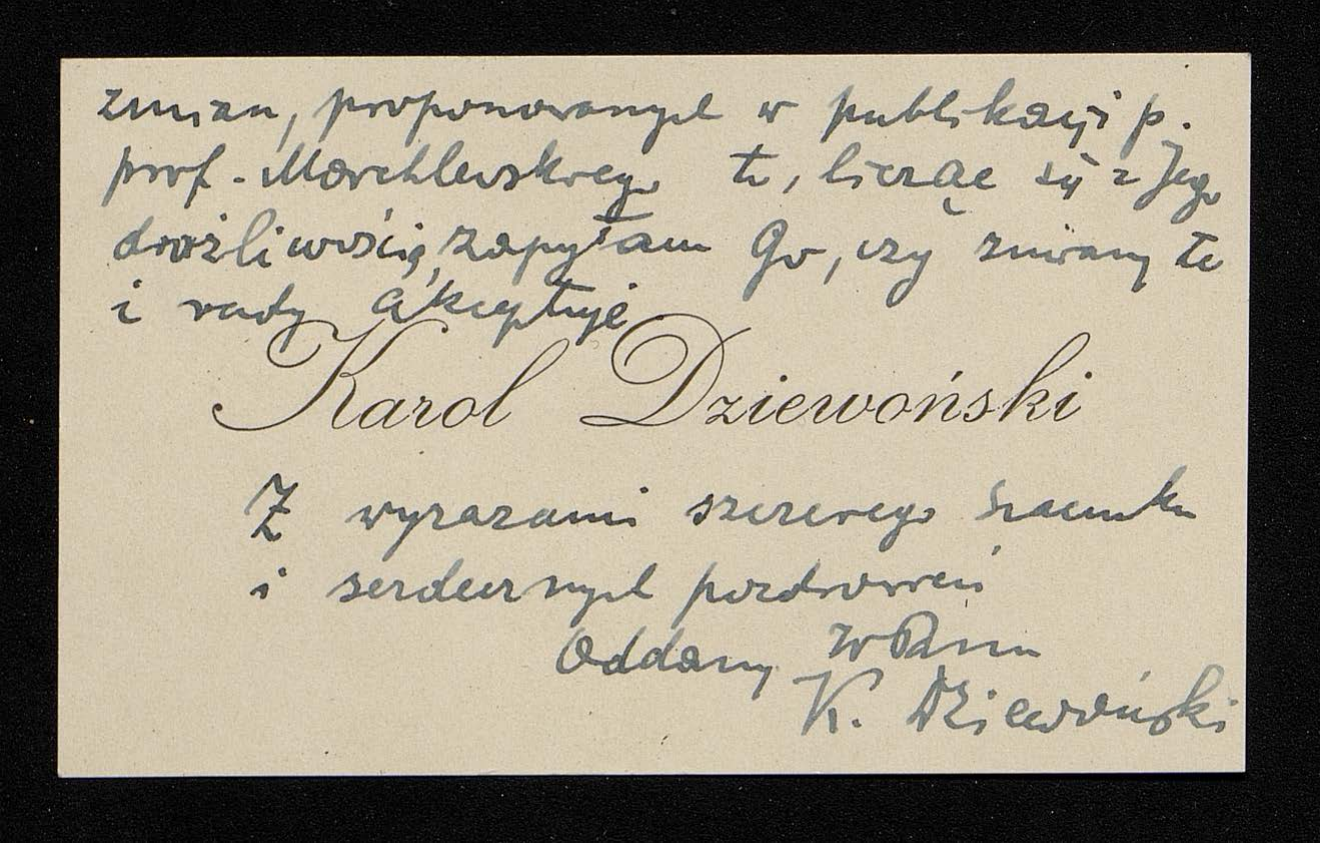 zmian, proponowanych w publikacji p.
prof. Marchlewskiego to, licząc się z Jego
drażliwością, zapytam Go, czy zmiany te
i rady akceptuje
Karol Dziewoński
Z wyrazami szczerego szacunku
i serdecznych pozdrowień
Oddany WPanu
K. Dziewoński